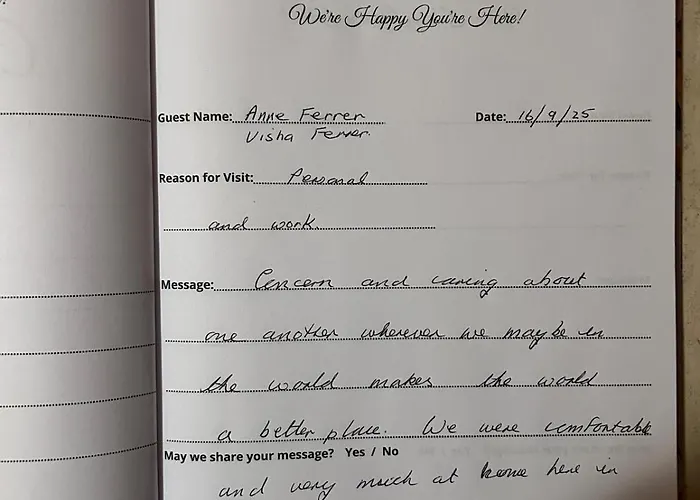 We're Happy You're Here!
Guest Name: Anne Ferrer Date: 16/9/25
Visha Ferrer
Reason for Visit: Personal
and work.
Message: Concern and caring about
one another wherever we may be in
the world makes the world
a better place. We were comfortable
May we share your message? Yes / No
and very much at home here in